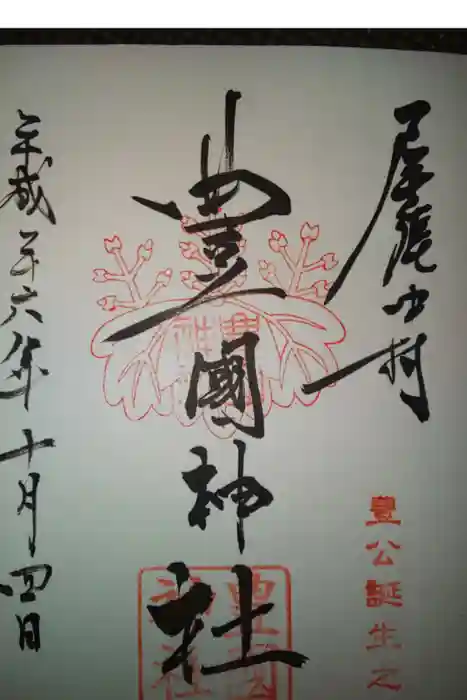 尾張中村
豊公誕生之
豊國神社
平成二十六年十月四日